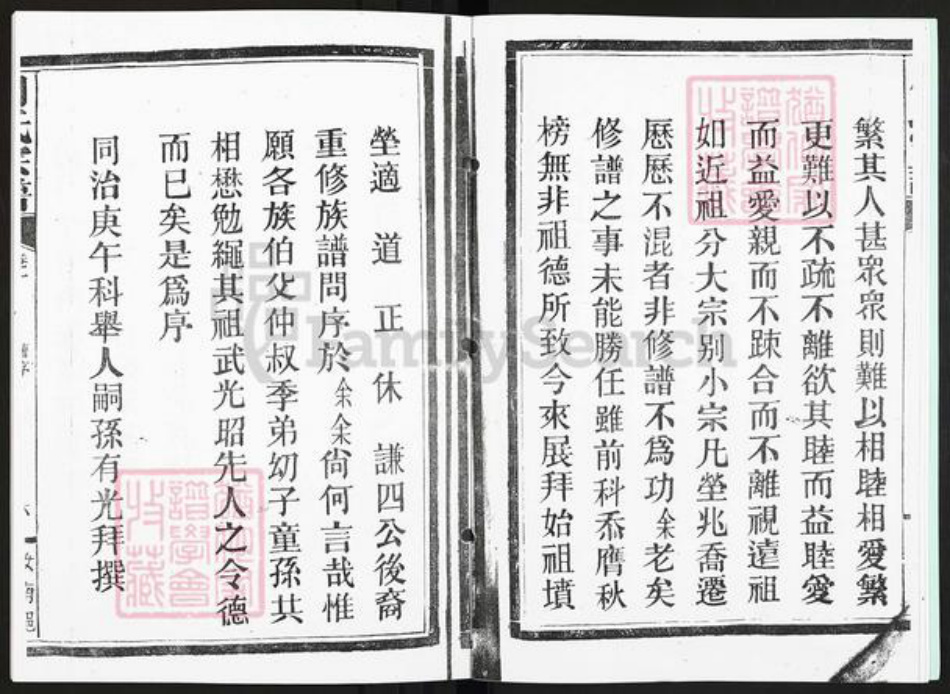 繁其人甚眾眾則難以相睦相愛繁
更難以不疏不離欲其睦而益睦愛
而益愛親而不踈合而不離視遠祖
如近祖分大宗别小宗凡塋兆喬遷
厯厯不混者非修譜不爲功余老矣
修譜之事未能勝任雖前科忝膺秋
榜無非祖德所致今來展拜始祖墳
塋適道正休謙四公後裔
重修族譜問序於余余尙何言哉惟
願各族伯父仲叔季弟幼子童孫共
相懋勉繩其祖武光昭先人之令德
而已矣是爲序
同治庚午科舉人嗣孫有光拜撰
FamilySearch